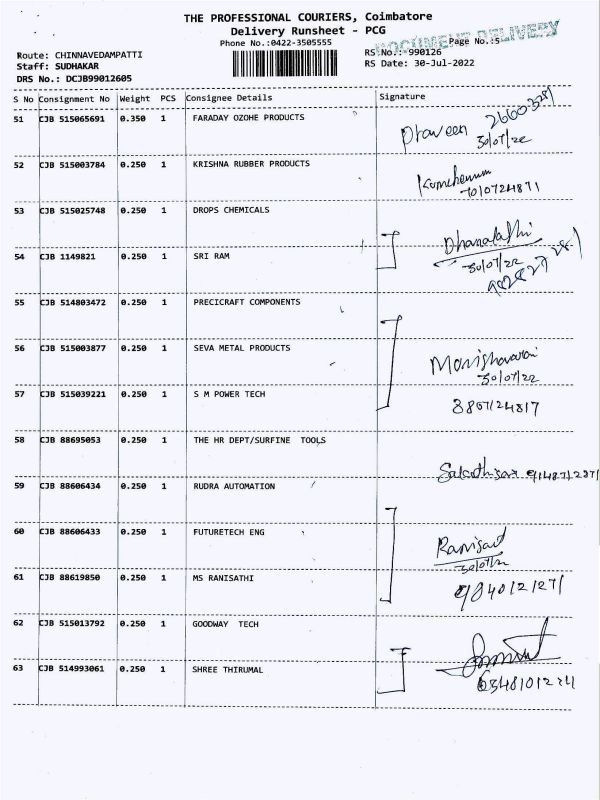 THE PROFESSIONAL COURIERS, Coimbatore
Delivery Runsheet - PCG
DOCUMENT DELIVERY
Phone No.:0422-3505555
Page No.:5
Route: CHINNAVEDAMPATTI
RS No.:-990126
Staff: SUDHAKAR
RS Date: 30-Jul-2022
DRS No.: DCJB99012605
S No Consignment No Weight PCS Consignee Details Signature
51 CJB 515065691 0.350 1 FARADAY OZOHE PRODUCTS
Praveen
30/07/22
52 CJB 515003784 0.250 1 KRISHNA RUBBER PRODUCTS
53 CJB 515025748 0.250 1 DROPS CHEMICALS
54 CJB 1149821 0.250 1 SRI RAM
30/07/22
55 CJB 514803472 0.250 1 PRECICRAFT COMPONENTS
56 CJB 515003877 0.250 1 SEVA METAL PRODUCTS
30/07/22
57 CJB 515039221 0.250 1 S M POWER TECH
58 CJB 88695053 0.250 1 THE HR DEPT/SURFINE TOOLS
59 CJB 88606434 0.250 1 RUDRA AUTOMATION
60 CJB 88606433 0.250 1 FUTURETECH ENG
30/07/22
61 CJB 88619850 0.250 1 MS RANISATHI
62 CJB 515013792 0.250 1 GOODWAY TECH
63 CJB 514993061 0.250 1 SHREE THIRUMAL